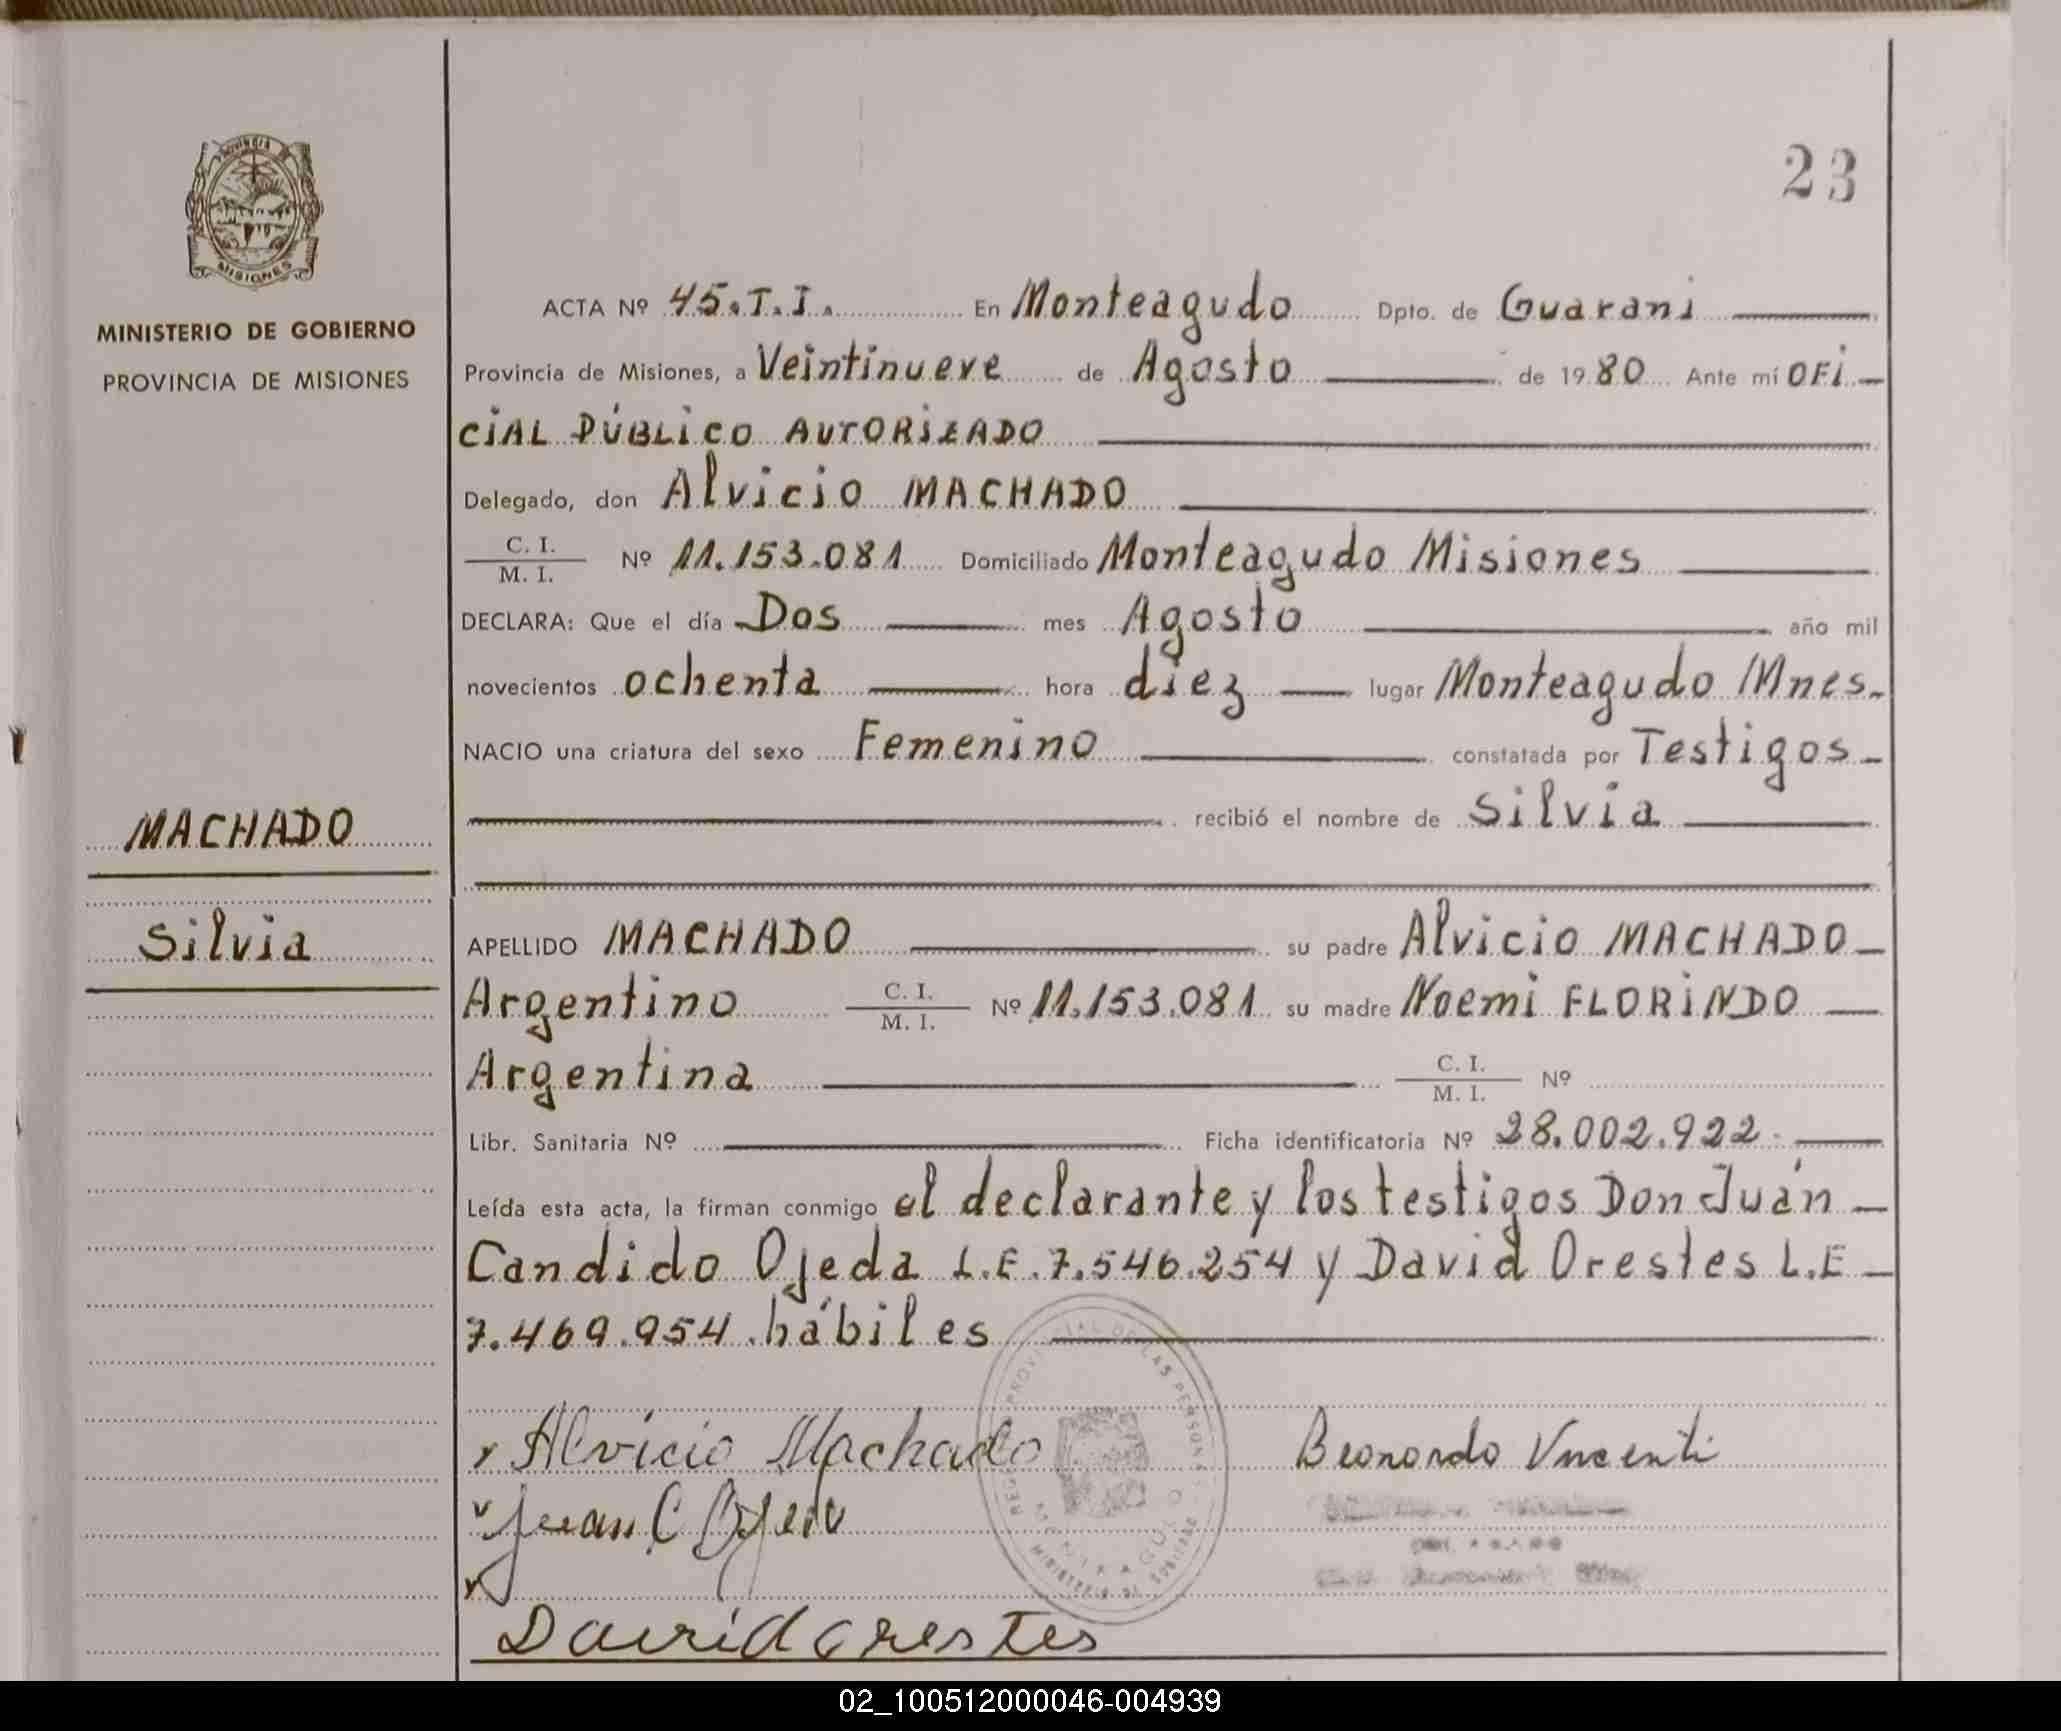 23
PROVINCIA DE
MISIONES
MINISTERIO DE GOBIERNO
PROVINCIA DE MISIONES
MACHADO
Silvia
ACTA Nº 45.T.I. En Monteagudo Dpto. de Guarani
Provincia de Misiones, a Veintinueve de Agosto de 1980 Ante mí OFi
CiAL PÚBLiCO AUTORiZADO
Delegado, don Alvicio MACHADO
C. I. / M. I. Nº 11.153.081 Domiciliado Monteagudo Misiones
DECLARA: Que el día Dos mes Agosto año mil
novecientos ochenta hora diez lugar Monteagudo Mnes.
NACIO una criatura del sexo Femenino constatada por Testigos
recibió el nombre de Silvia
APELLIDO MACHADO su padre Alvicio MACHADO
Argentino C. I. / M. I. Nº 11.153.081 su madre Noemi FLORiNDO
Argentina C. I. / M. I. Nº
Libr. Sanitaria Nº Ficha identificatoria Nº 28.002.922
Leída esta acta, la firman conmigo el declarante y los testigos Don Juán
Candido Ojeda L.E.7.546.254 y David Orestes L.E
7.469.954.hábiles
Alvicio Machado
Juan C Ojeda
David orestes
02_100512000046-004939